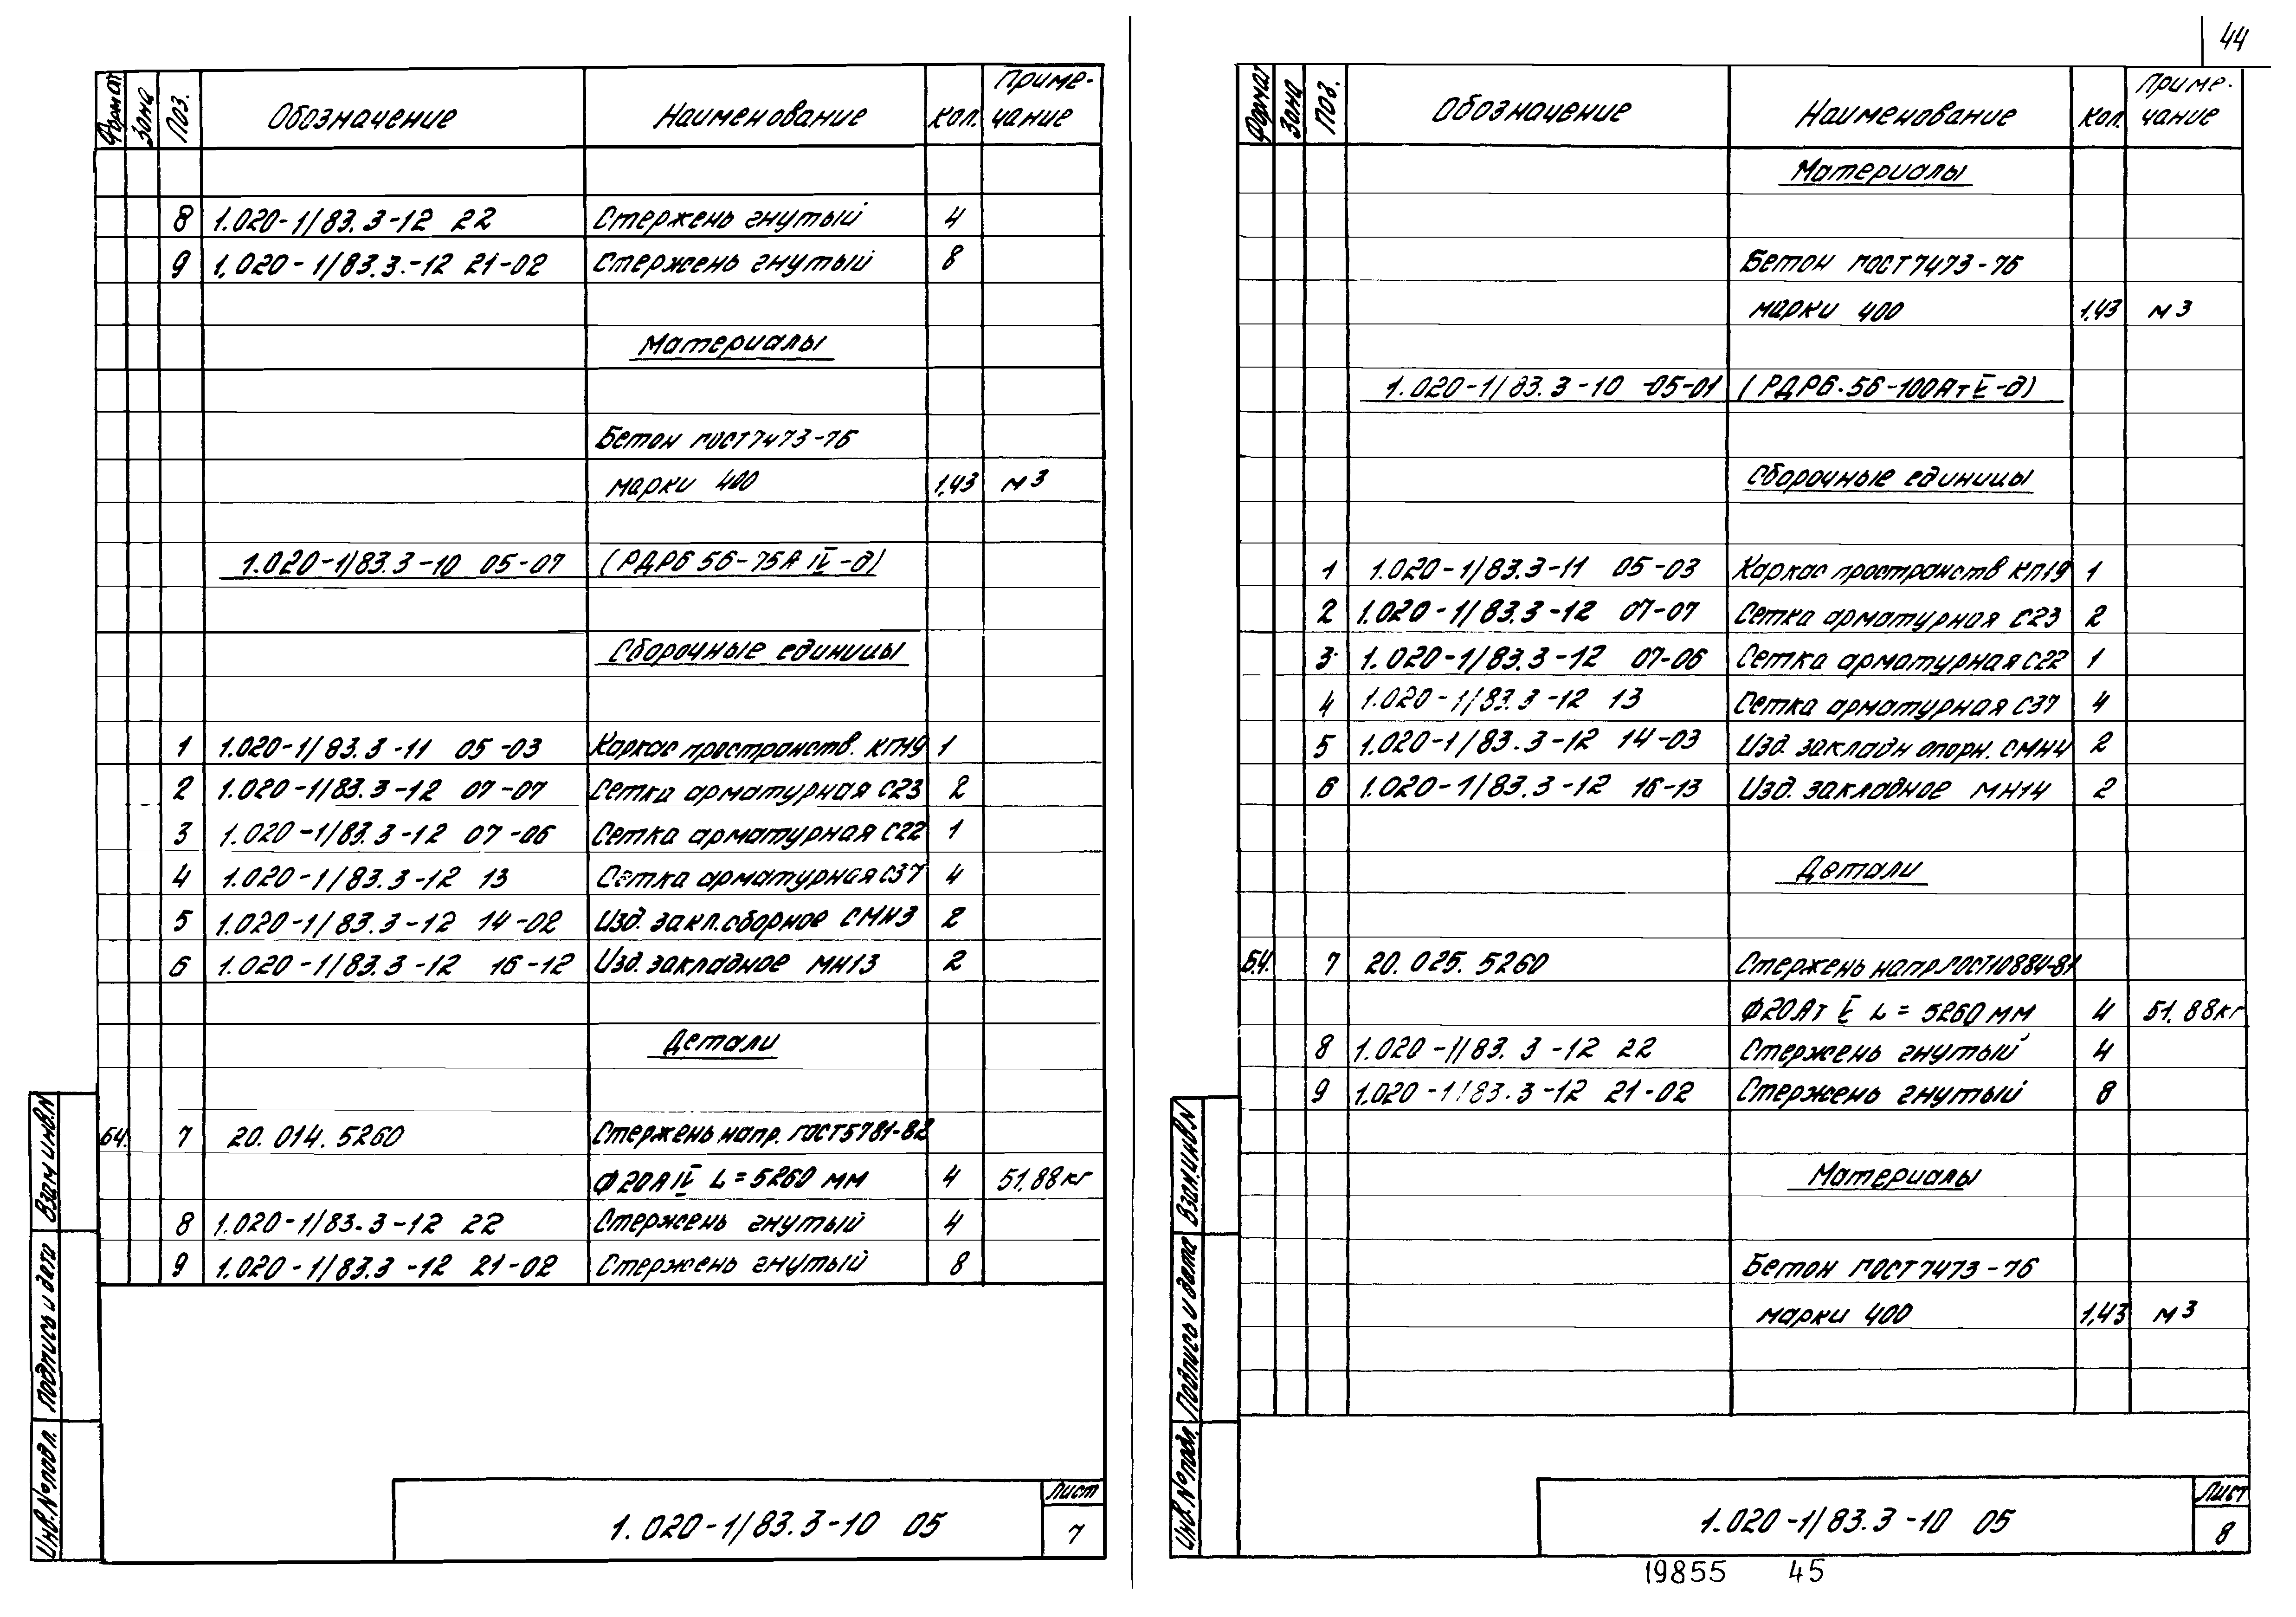 44
Формат Зона Поз. Обозначение Наименование Кол. Приме-
чание
8 1.020-1/83.3-12 22 Стержень гнутый 4
9 1.020-1/83.3.-12 21-02 Стержень гнутый 8
Материалы
Бетон ГОСТ7473-76
марки 400 1,43 м3
1.020-1/83.3-10 05-07 (РДР6 56-75А IV-д)
Сборочные единицы
1 1.020-1/83.3-11 05-03 Каркас пространств. КП19 1
2 1.020-1/83.3-12 07-07 Сетка арматурная С23 2
3 1.020-1/83.3-12 07-06 Сетка арматурная С22 1
4 1.020-1/83.3-12 13 Сетка арматурная С37 4
5 1.020-1/83.3-12 14-02 Изд. закл.сборное СМН3 2
6 1.020-1/83.3-12 16-12 Изд. закладное МН13 2
Детали
БЧ. 7 20.014.5260 Стержень напр. ГОСТ5781-82
Ф20А IV L=5260 мм 4 51,88кг
8 1.020-1/83.3-12 22 Стержень гнутый 4
9 1.020-1/83.3-12 21-02 Стержень гнутый 8
Взам инв.N
Подпись и дата
Инв.№подл.
1.020-1/83.3-10 05
Лист
7
Формат Зона Поз. Обозначение Наименование Кол. Приме-
чание
Материалы
Бетон ГОСТ7473-76
марки 400 1,43 м3
1.020-1/83.3-10 -05-01 (РДР6.56-100Ат V-д)
Сборочные единицы
1 1.020-1/83.3-11 05-03 Каркас пространств КП19 1
2 1.020-1/83.3-12 07-07 Сетка арматурная С23 2
3 1.020-1/83.3-12 07-06 Сетка арматурная С22 1
4 1.020-1/83.3-12 13 Сетка арматурная С37 4
5 1.020-1/83.3-12 14-03 Изд. закладн опорн. СМН4 2
6 1.020-1/83.3-12 16-13 Изд. закладное МН14 2
Детали
БЧ. 7 20.025.5260 Стержень напр.ГОСТ10884-81
Ф20Ат V L=5260 мм 4 51,88кг
8 1.020-1/83.3-12 22 Стержень гнутый 4
9 1.020-1/83.3-12 21-02 Стержень гнутый 8
Материалы
Бетон ГОСТ7473-76
марки 400 1,43 м3
Взам.инв.N
Подпись и дата
Инв.№подл.
1.020-1/83.3-10 05
Лист
8
19855 45